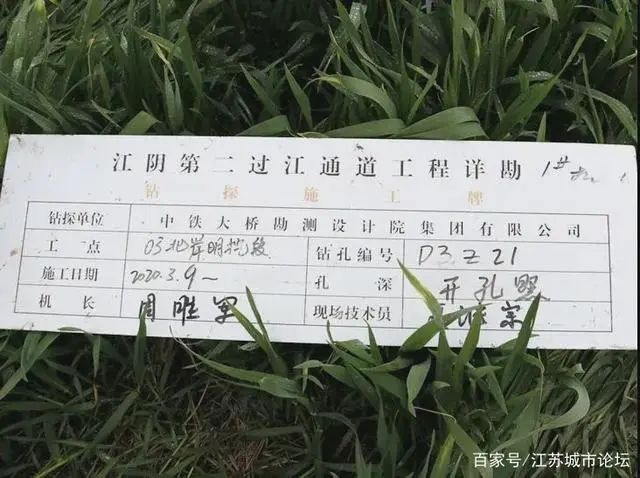 江阴第二过江通道工程详勘 1#
钻探施工牌
钻探单位 中铁大桥勘测设计院集团有限公司
工点 03北岸明挖段 钻孔编号 D3Z21
施工日期 2020.3.9~ 孔深 开孔照
机长 周胜军 现场技术员
百家号/江苏城市论坛